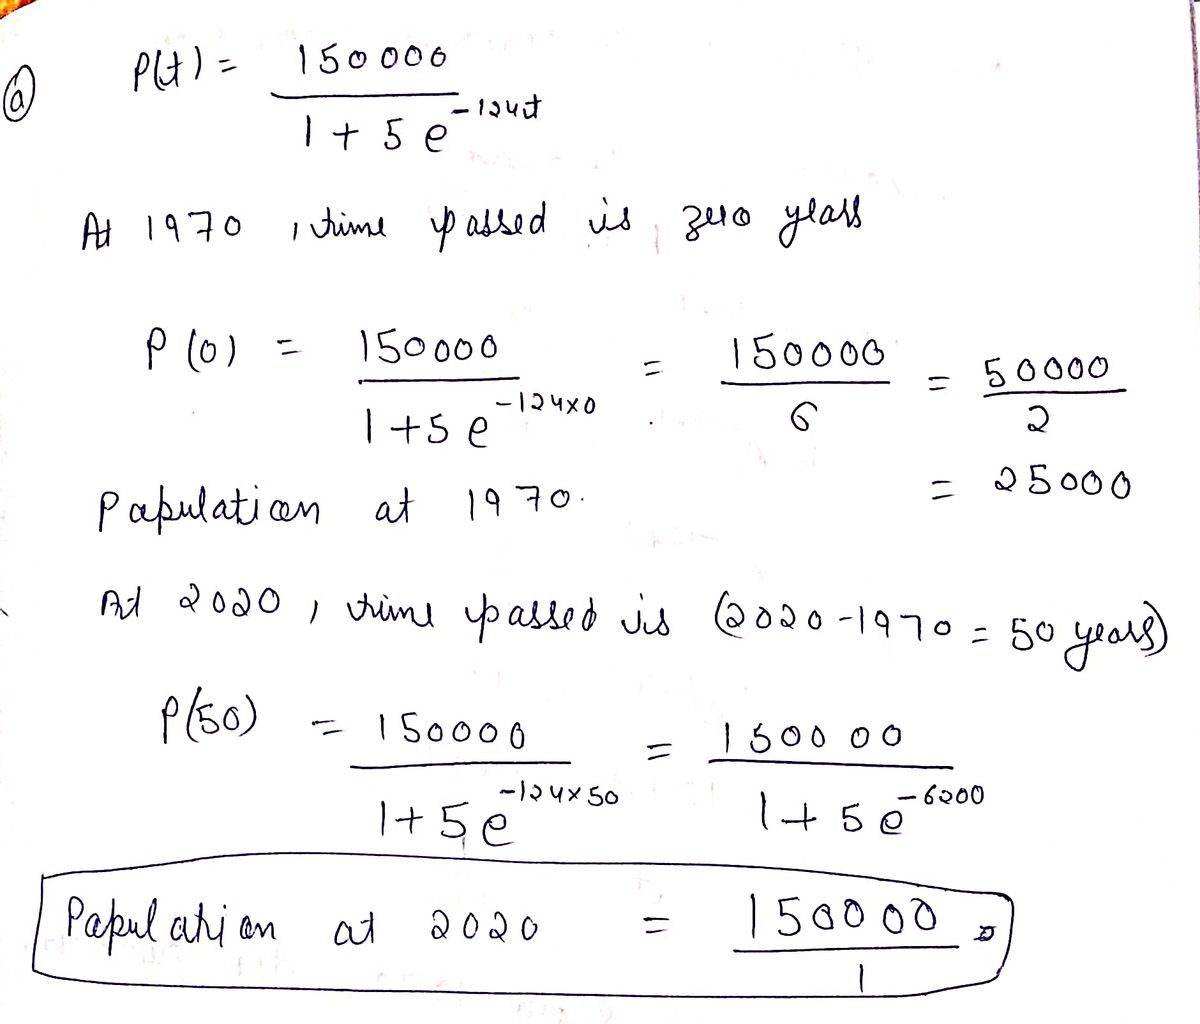 (a) P(t) = 150000 / (1 + 5e^(-124t))
At 1970 , time passed is zero years
P(0) = 150000 / (1+5e^(-124×0)) = 150000 / 6 = 50000 / 2
= 25000
Papulation at 1970.
At 2020 , time passed is (2020-1970 = 50 years)
P(50) = 150000 / (1+5e^(-124×50)) = 150000 / (1+5e^(-6200))
Papulation at 2020 = 150000 / 1 .